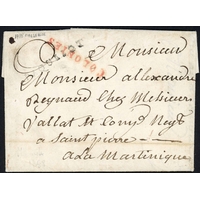 Monsieur
Monsieur allexandre
Reynaud Chez Mesieurs
Vallat et Comp Negt
a Saint pierre
a La Martinique